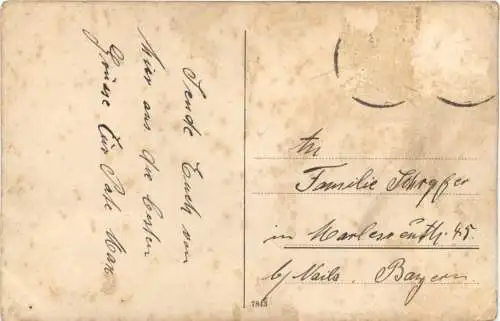 Sende Euch von
hier aus die besten
Grüsse Eur Pate Max
An
Familie
in Marlesreuth 45
b/ Naila. Bayern
7843